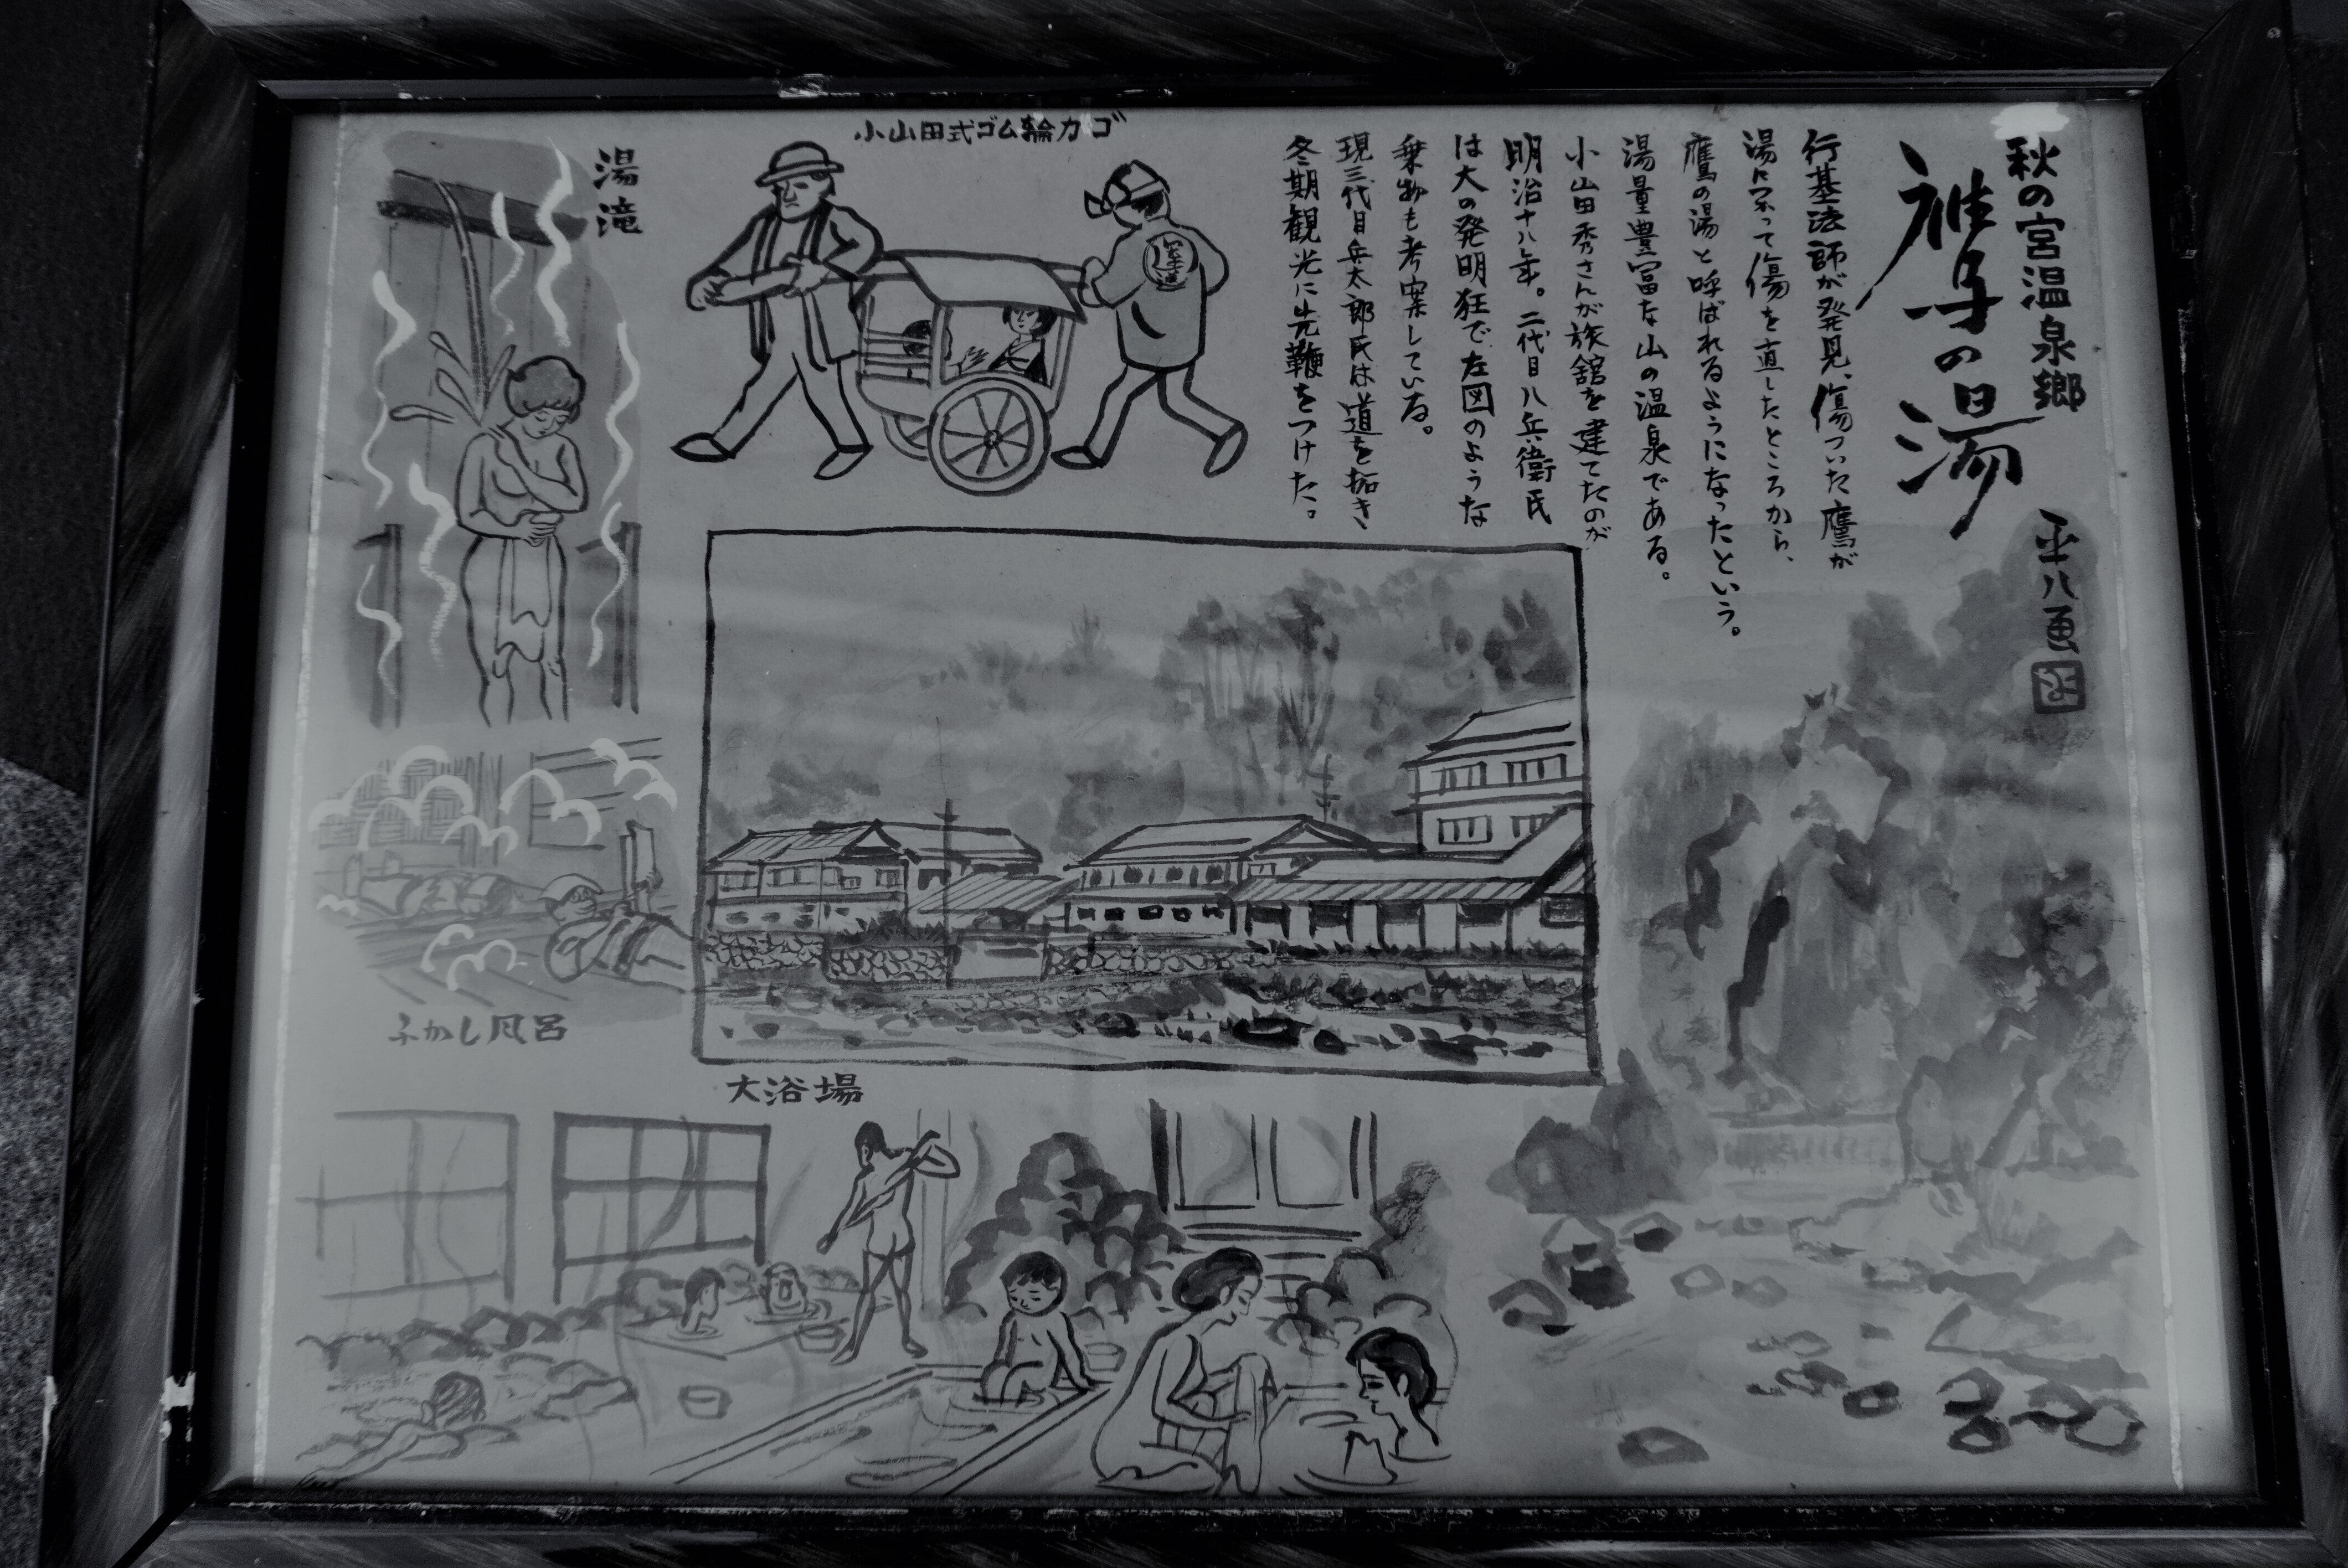 秋の宮温泉郷
鷹の湯
平八画
行基法師が発見、傷ついた鷹が
湯につかって傷を直したところから、
鷹の湯と呼ばれるようになったという。
湯量豊富な山の温泉である。
小山田秀さんが旅舘を建てたのが
明治十八年。二代目八兵衛氏
は大の発明狂で左図のような
乗物も考案している。
現三代目兵太郎氏は道を拓き
冬期観光に先鞭をつけた。
小山田式ゴム輪カゴ
湯滝
ふかし風呂
大浴場